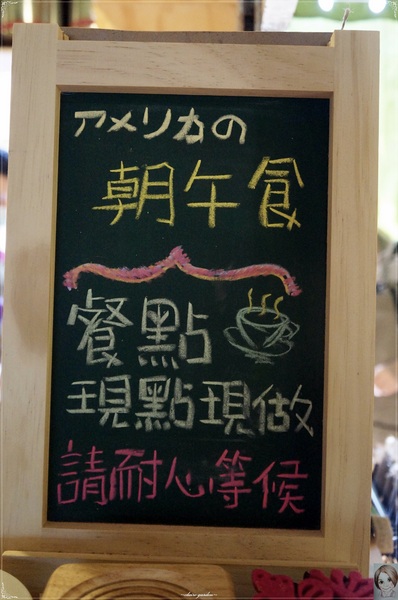 アメリカの
朝午食
餐點
現點現做
請耐心等候